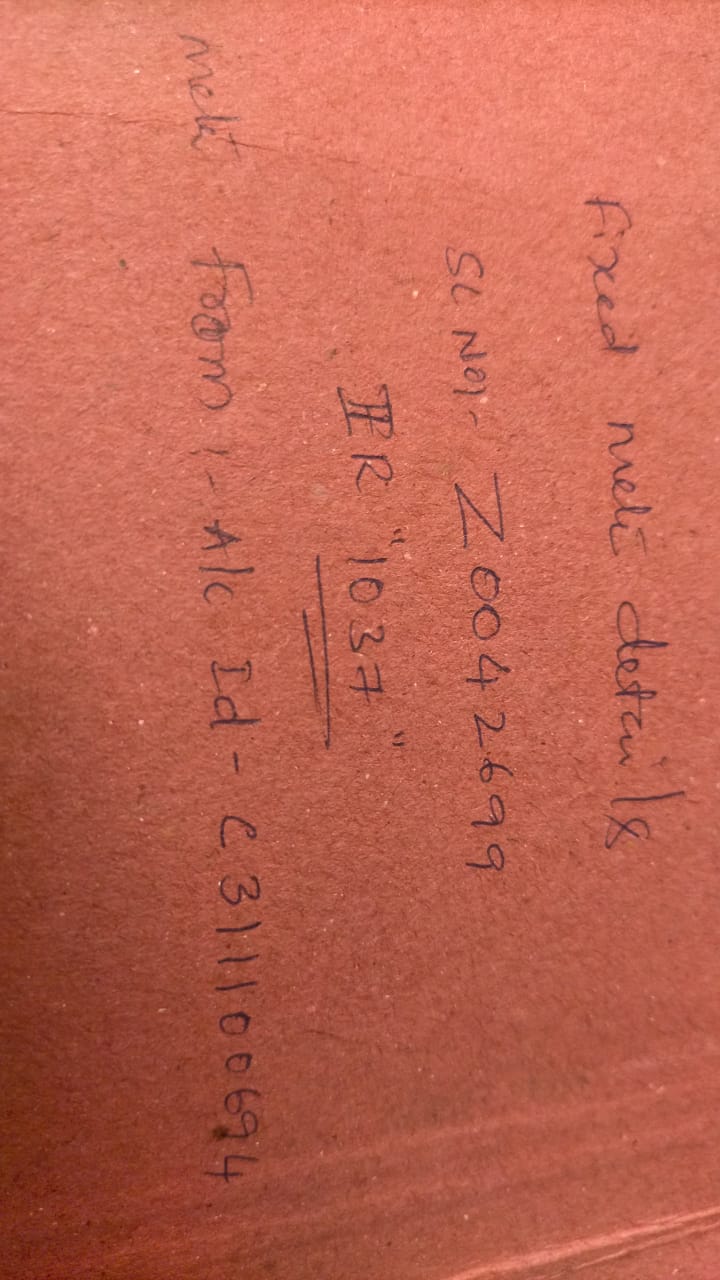 Fixed metè details
SL NO:- Z0042699
IR "1037"
metè from :- A/c Id - C311100694